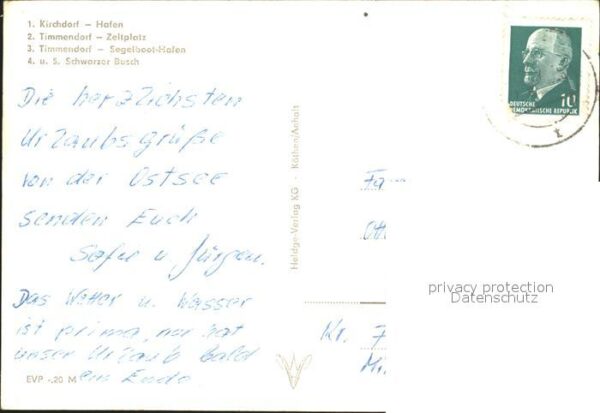 1. Kirchdorf – Hafen
2. Timmendorf – Zeltplatz
3. Timmendorf – Segelboot-Hafen
4. u. 5. Schwarzer Busch
Die herzlichsten
Urlaubsgrüße
von der Ostsee
senden Euch
u. Jürgen.
Das Wetter u. Wasser
ist prima, nur hat
unser Urlaub bald
ein Ende.
EVP -.20 M
Heldge-Verlag KG · Köthen/Anhalt
10
DEUTSCHE
DEMOKRATISCHE REPUBLIK
Fa
Ott
Kr. 7
Mi
privacy protection
Datenschutz